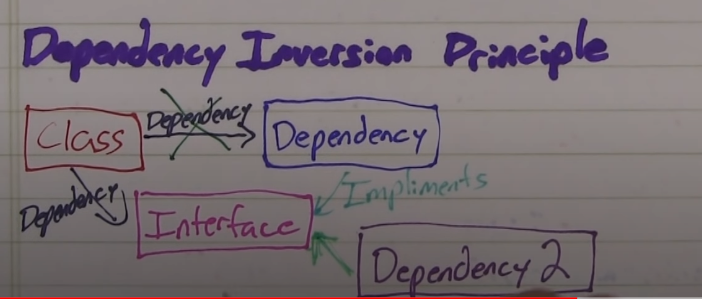 Dependency Inversion Principle
Class
Dependency
Dependency
Dependency
Interface
Impliments
Dependency 2